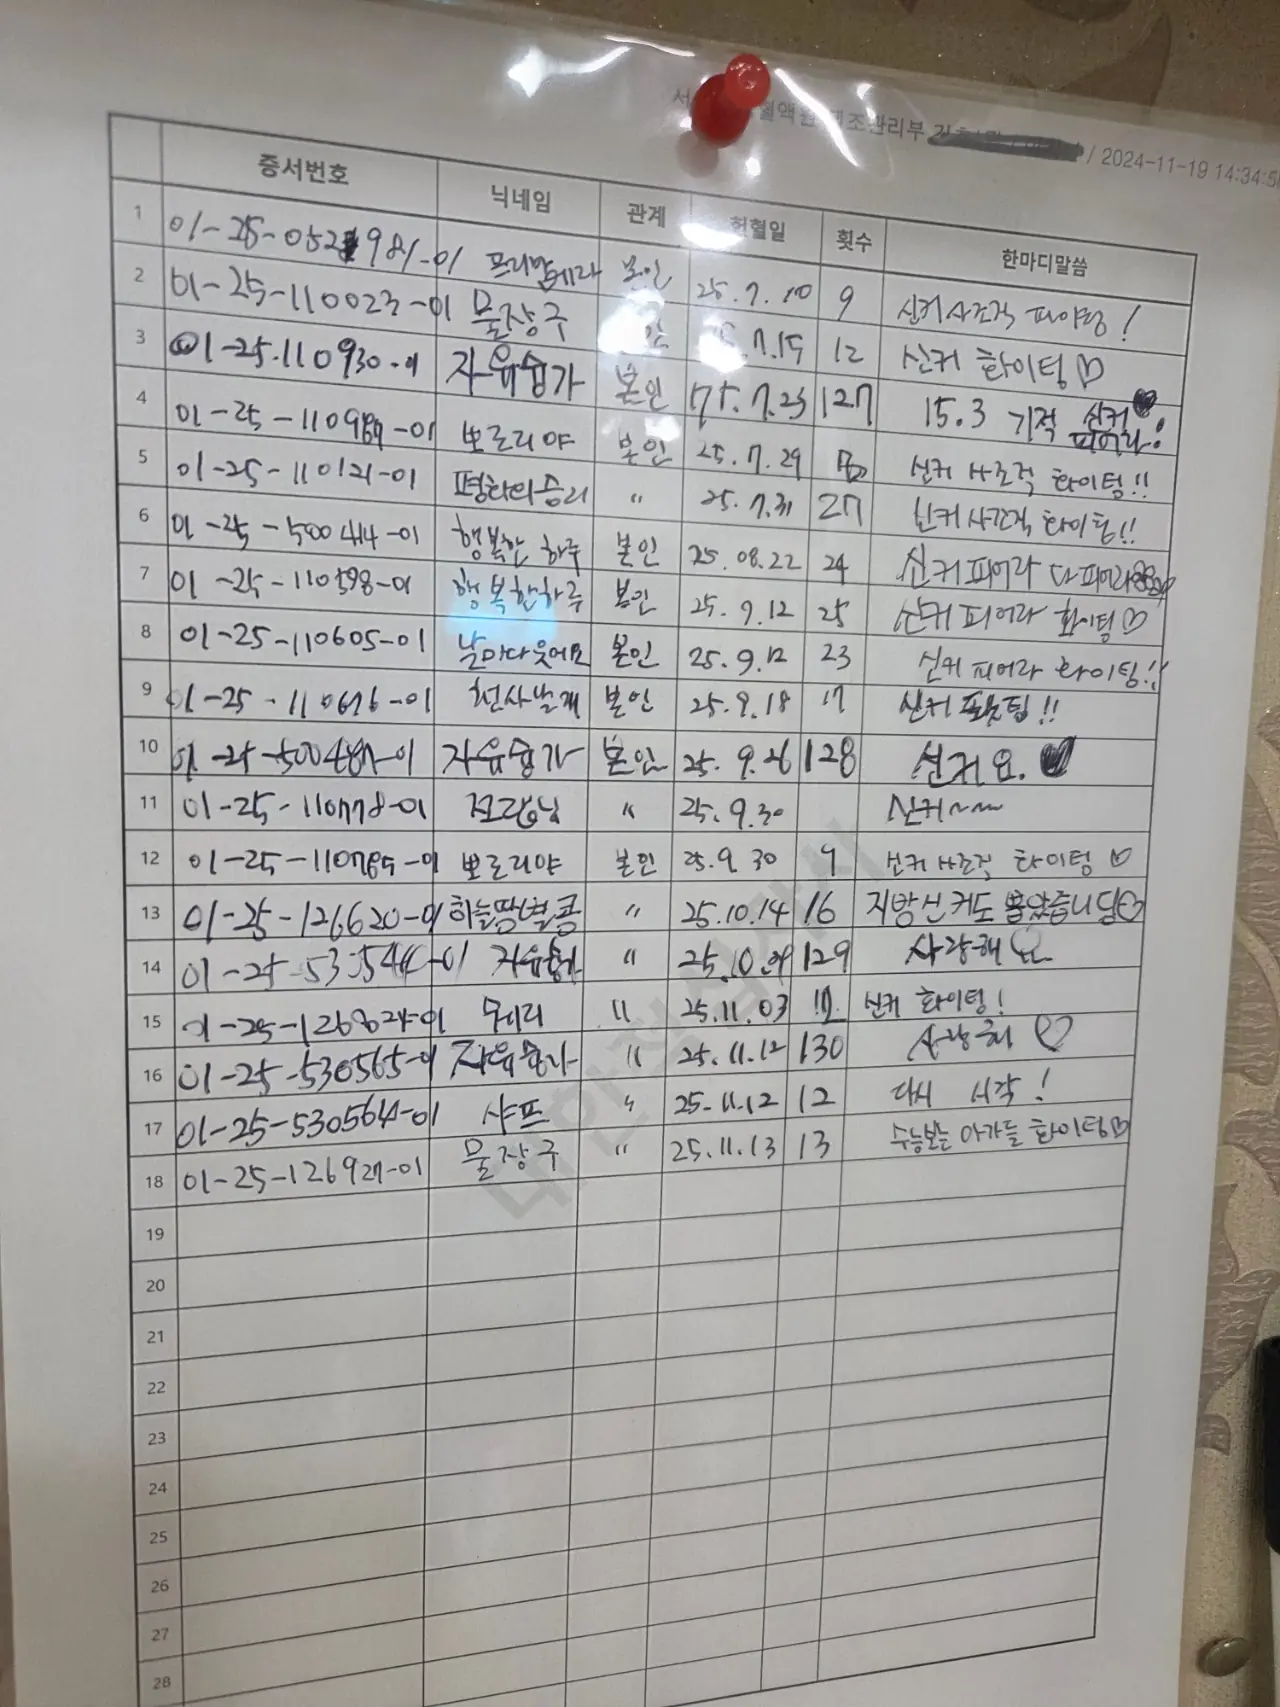 혈액원 제조관리부 / 2024-11-19 14:34:5
증서번호 닉네임 관계 헌혈일 횟수 한마디말씀
1 01-25-052 981-01 프리맘테라 본인 25.7.10 9 신커 사조직 파이팅!
2 01-25-110023-01 물장구 7.15 12 신커 화이팅♡
3 01-25.110930-01 자유숨가 본인 25.7.23 127 15.3 기적 신커♥ 피어라!
4 01-25-110984-01 뽀로리야 본인 25.7.29 신커 사조직 화이팅!!
5 01-25-110121-01 평화의승리 〃 25.7.31 27 신커사조직 화이팅!!
6 01-25-500414-01 행복한 하루 본인 25.08.22 24 신커피어라 다피어라
7 01-25-110598-01 행복한하루 본인 25.9.12 25 신커피어라 화이팅♡
8 01-25-110605-01 날마다웃어요 본인 25.9.12 23 신커 피어라 화이팅!!
9 01-25-110676-01 천사날개 본인 25.9.18 17 신커 !!
10 01-25-500487-01 자유숨가 본인 25.9.26 128 신커요.♥
11 01-25-110778-01 〃 25.9.30 신커~~~
12 01-25-110785-01 뽀로리야 본인 25.9.30 9 신커 사조직 화이팅♡
13 01-25-126620-01 하늘땅별콩 〃 25.10.14 16 지방신커도 뽑았습니다♡
14 01-25-530544-01 자유숨가 〃 25.10.29 129 사랑해♡
15 01-25-126824-01 〃 25.11.03 신커 화이팅!
16 01-25-530565-01 자유숨가 〃 25.11.12 130 사랑해♡
17 01-25-530564-01 샤프 〃 25.11.12 12 다시 시작!
18 01-25-126927-01 물장구 〃 25.11.13 13 수능보는 아가들 화이팅♡
19
20
21
22
23
24
25
26
27
28